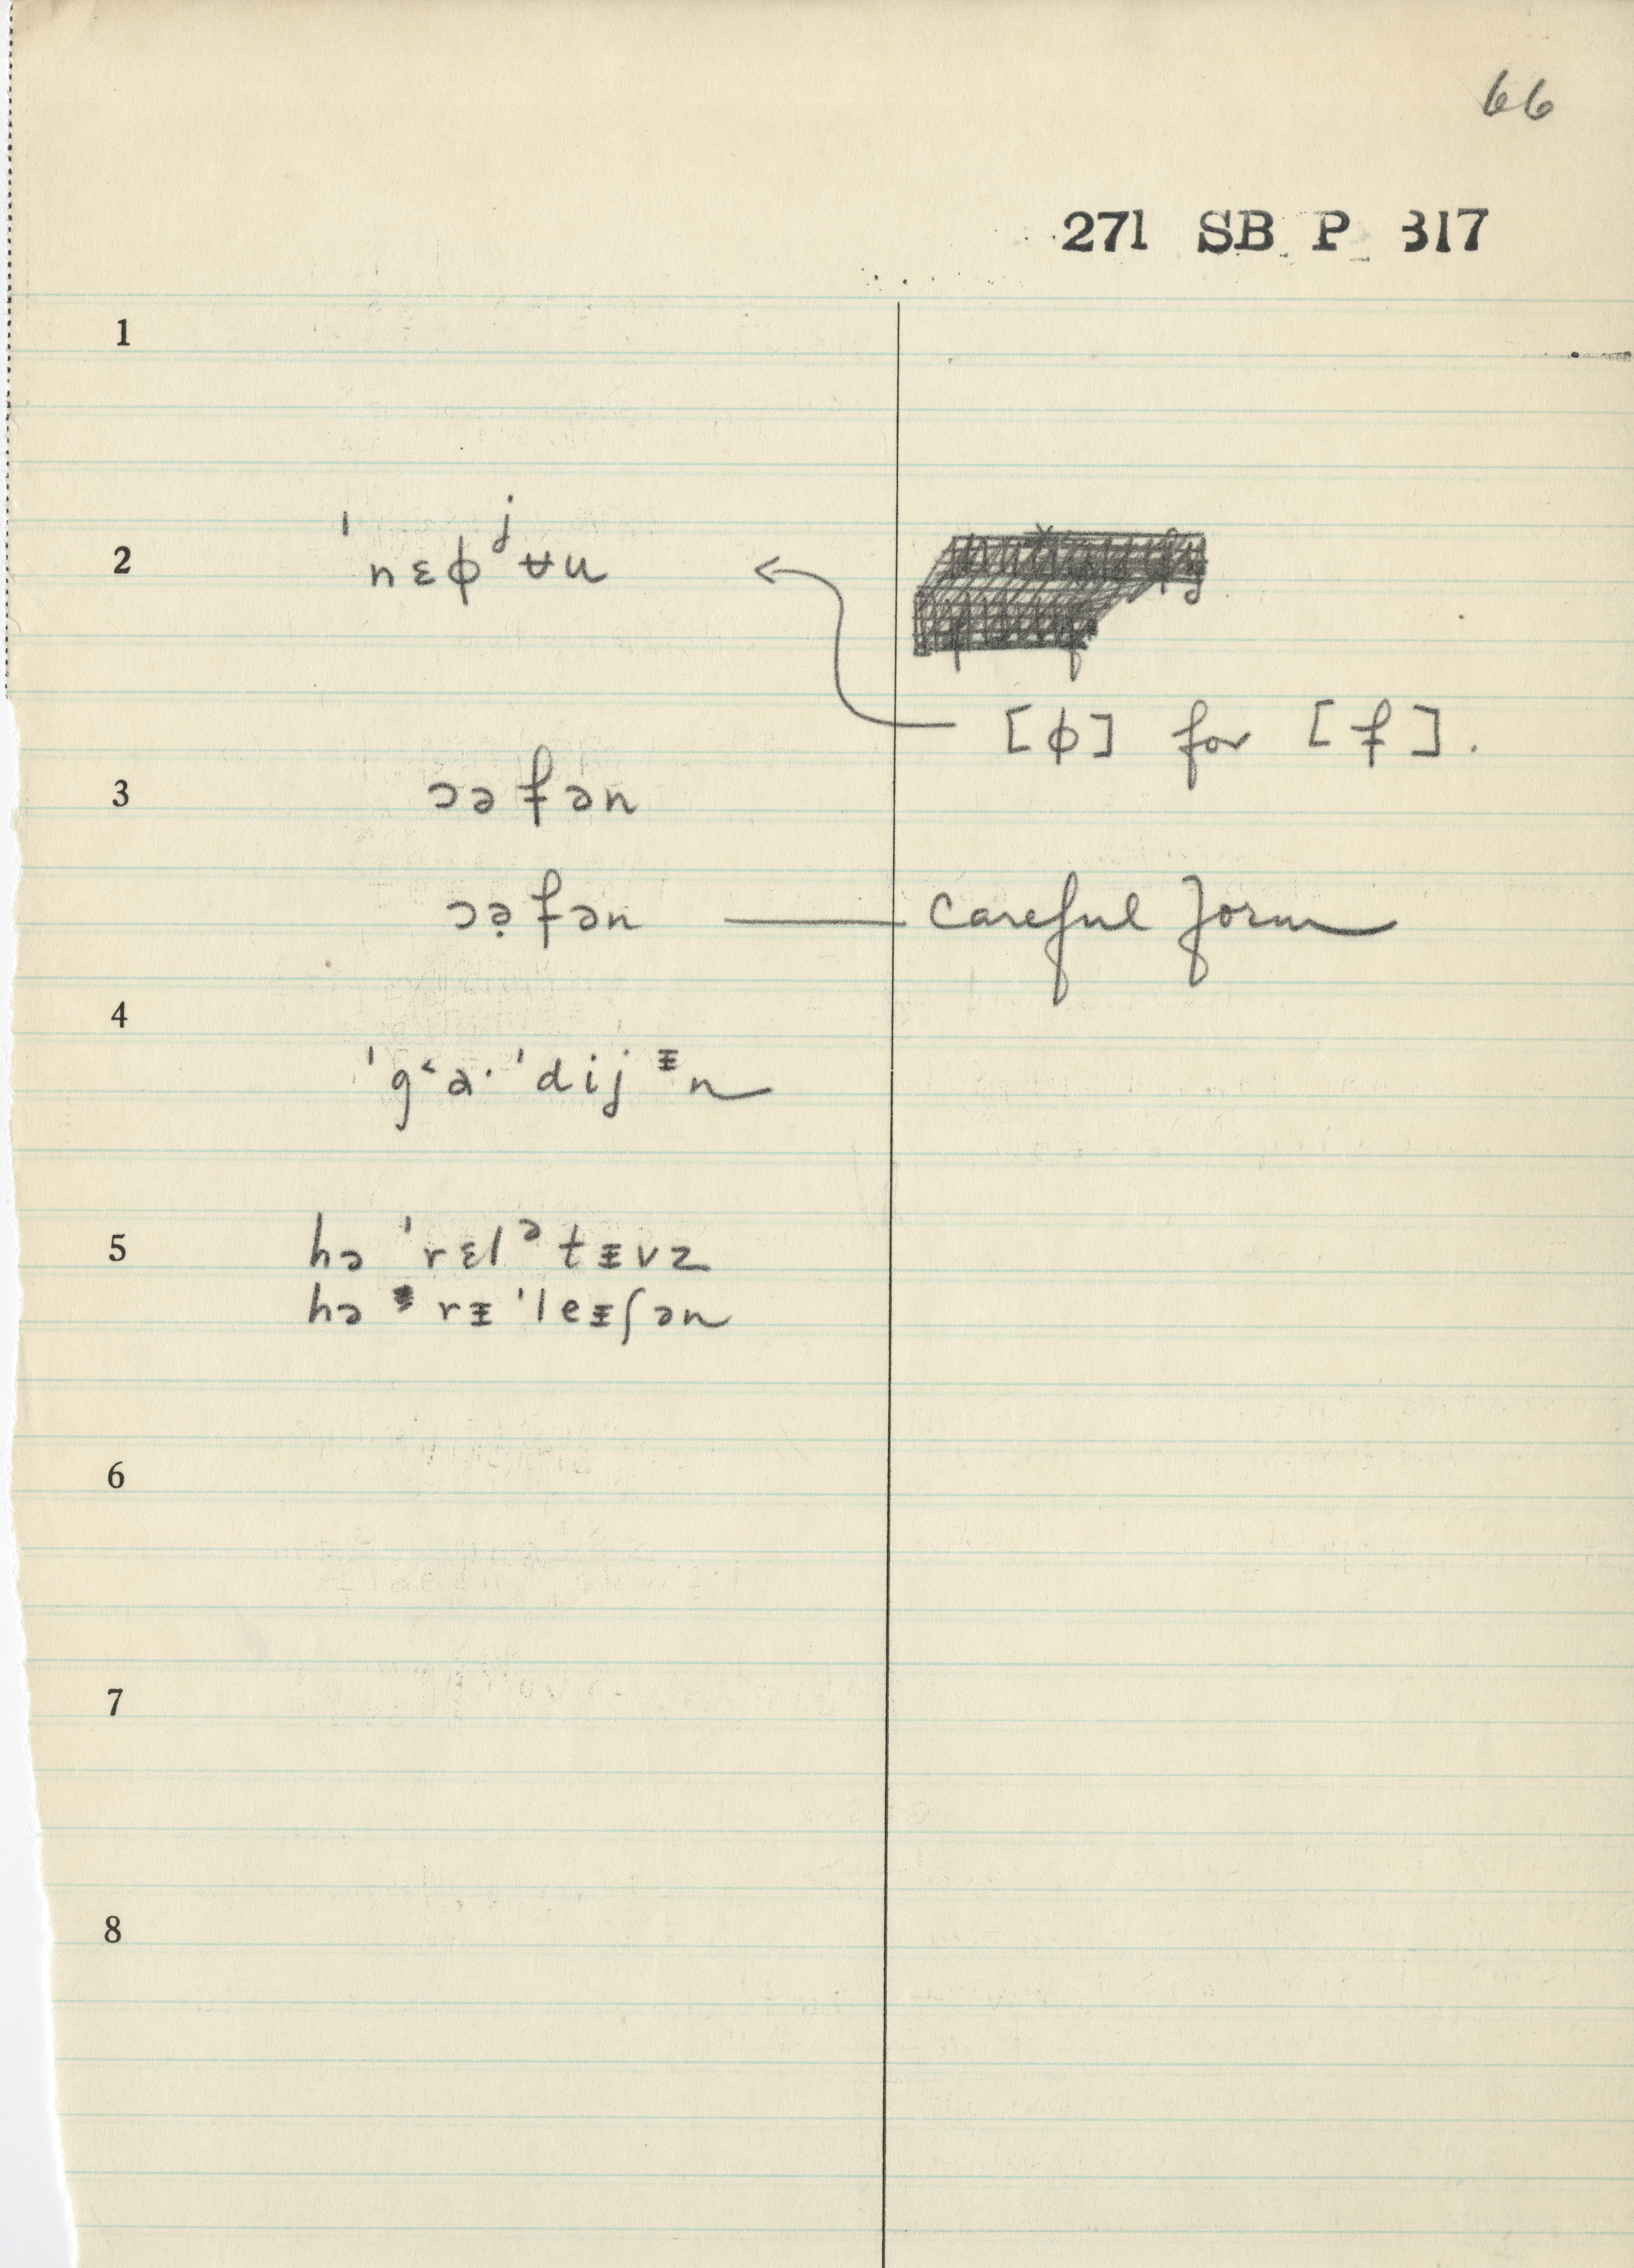 66
271 SB P 317
1
2 ˈnɛɸʲʉu
[ɸ] for [f].
3 ɔəfən
ɔə̣fən — careful form
4
ˈg˂a·ˈdijᵻn
5 hə ˈrɛlᵊtᵻvz
hə rᵻˈleᵻʃən
6
7
8